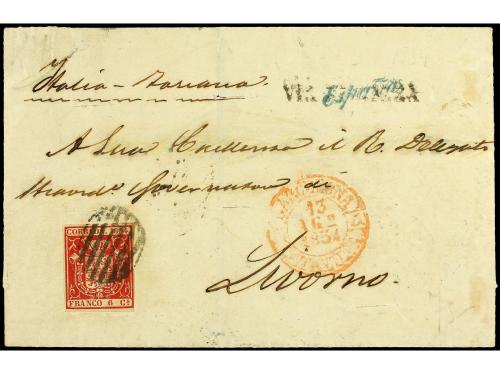 Italia - Toscana.
España
A Sua Excellenza il R. Delegato
Straord.º Governatore di
Livorno.
13
1854
CORREOS
FRANCO 6 Cs